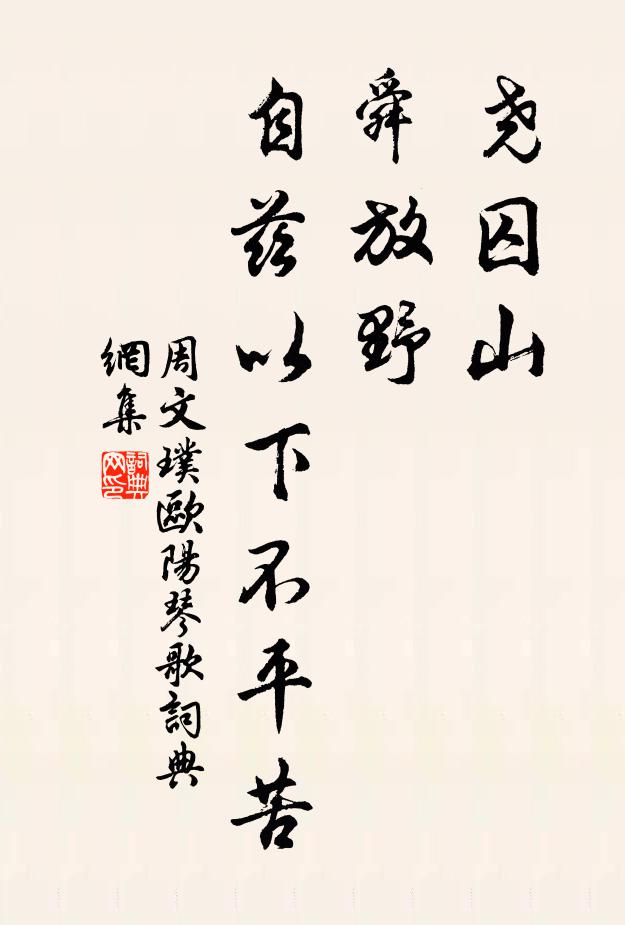 尧囚山
舜放野
自茲以下不平苦
周文璞歐陽琴歌詞典
網集
詞典
网印